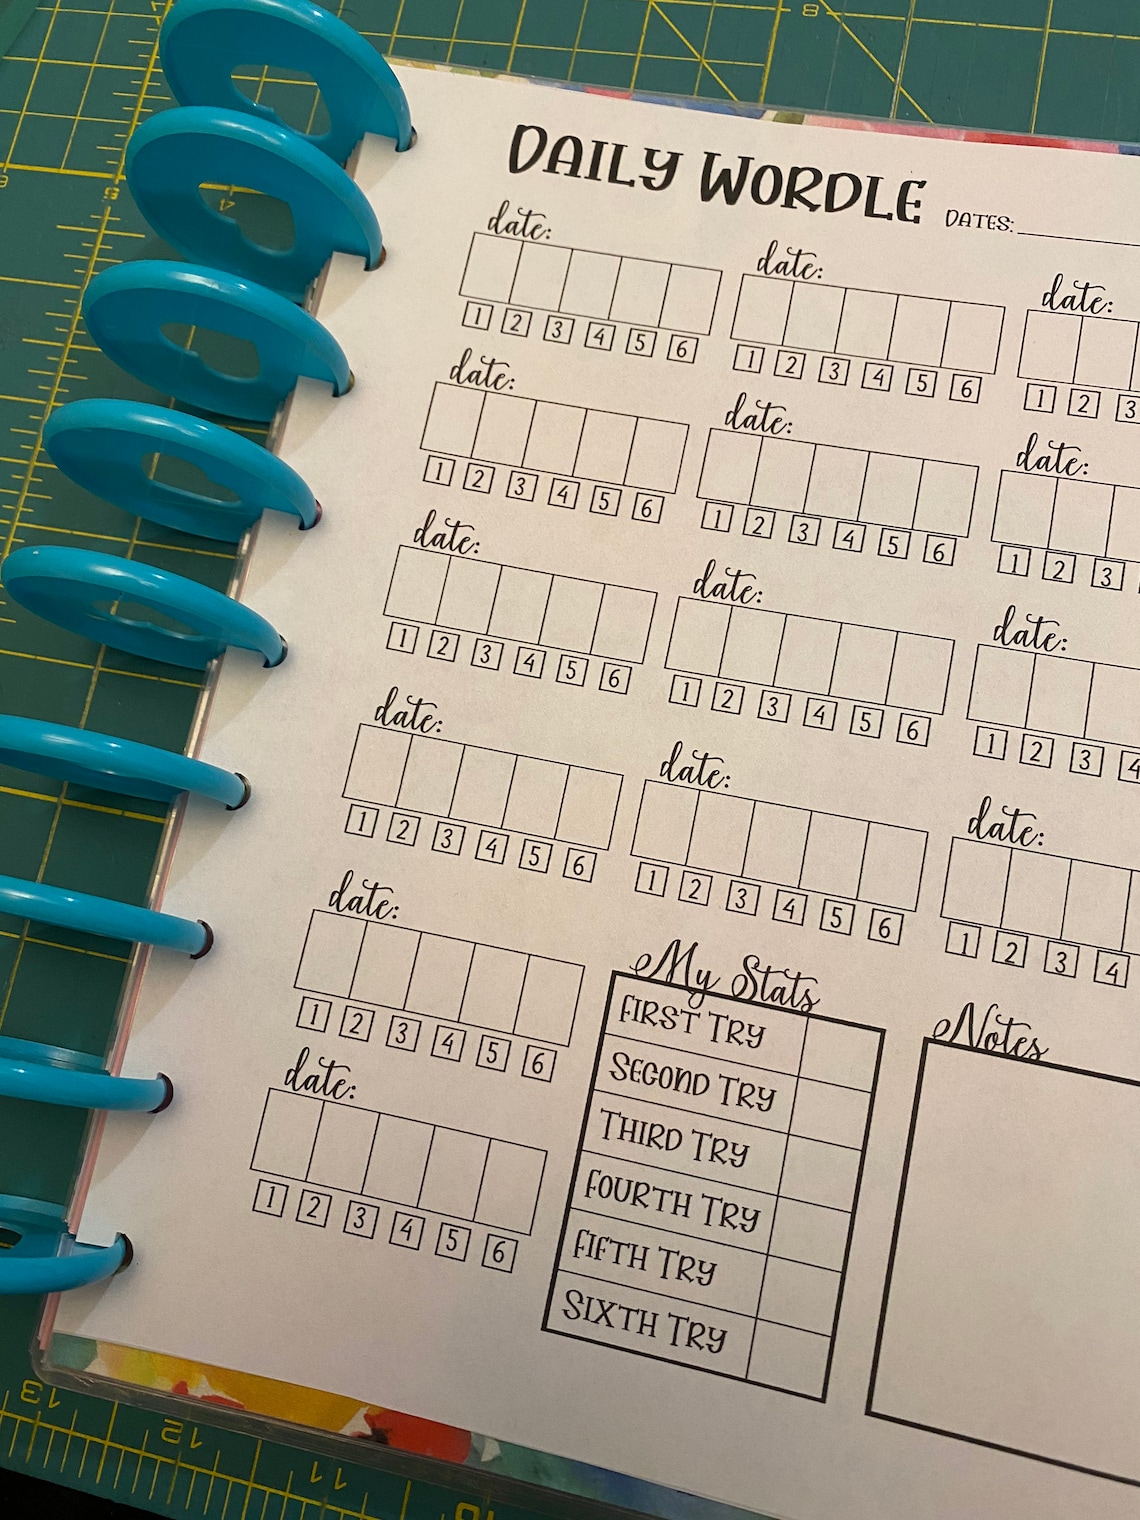 DAILY WORDLE DATES:
date: date: date:
1 2 3 4 5 6 1 2 3 4 5 6 1 2 3
date: date: date:
1 2 3 4 5 6 1 2 3 4 5 6 1 2 3
date: date: date:
1 2 3 4 5 6 1 2 3 4 5 6 1 2 3 4
date: date: date:
1 2 3 4 5 6 1 2 3 4 5 6 1 2 3 4
date:
1 2 3 4 5 6
date:
1 2 3 4 5 6
My Stats
FIRST TRY
SECOND TRY
THIRD TRY
FOURTH TRY
FIFTH TRY
SIXTH TRY
Notes
8
5
4
13
12
11
10